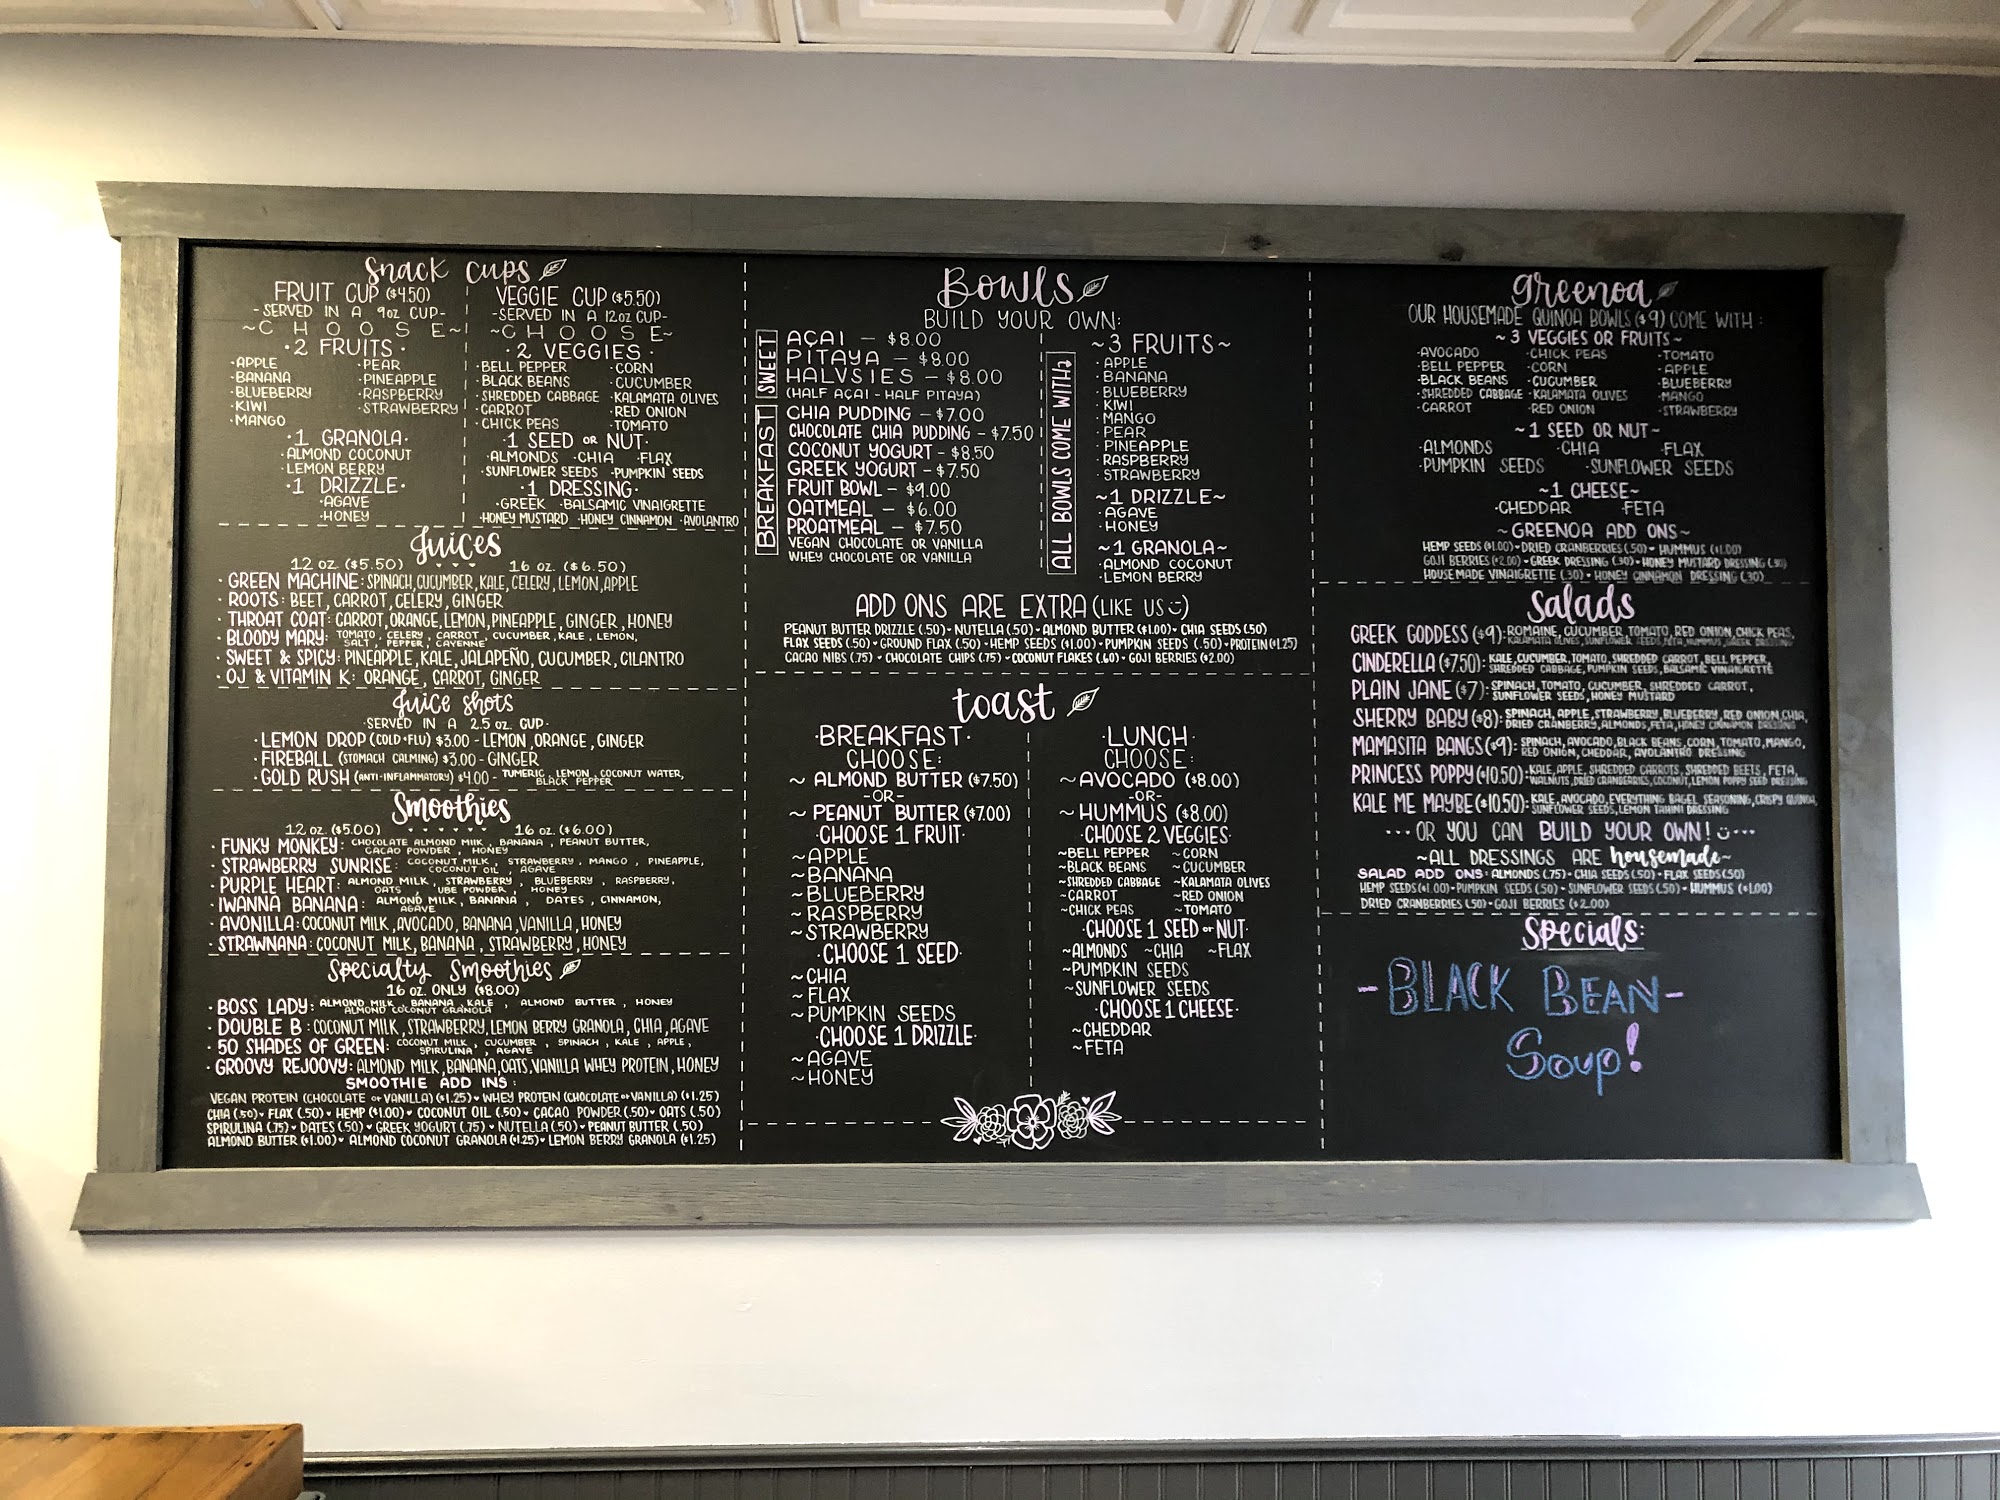 Snack Cups
FRUIT CUP ($4.50)
-SERVED IN A 9oz CUP-
~CHOOSE~
·2 FRUITS·
·APPLE ·PEAR
·BANANA ·PINEAPPLE
·BLUEBERRY ·RASPBERRY
·KIWI ·STRAWBERRY
·MANGO
·1 GRANOLA·
·ALMOND COCONUT
·LEMON BERRY
·1 DRIZZLE·
·AGAVE
·HONEY
VEGGIE CUP ($5.50)
-SERVED IN A 12oz CUP-
~CHOOSE~
·2 VEGGIES·
·BELL PEPPER ·CORN
·BLACK BEANS ·CUCUMBER
·SHREDDED CABBAGE ·KALAMATA OLIVES
·CARROT ·RED ONION
·CHICK PEAS ·TOMATO
·1 SEED OR NUT·
·ALMONDS ·CHIA ·FLAX
·SUNFLOWER SEEDS ·PUMPKIN SEEDS
·1 DRESSING·
·GREEK ·BALSAMIC VINAIGRETTE
·HONEY MUSTARD ·HONEY CINNAMON ·AVOLANTRO
Juices
12 oz. ($5.50) 16 oz. ($6.50)
· GREEN MACHINE: SPINACH, CUCUMBER, KALE, CELERY, LEMON, APPLE
· ROOTS: BEET, CARROT, CELERY, GINGER
· THROAT COAT: CARROT, ORANGE, LEMON, PINEAPPLE, GINGER, HONEY
· BLOODY MARY: TOMATO, CELERY, CARROT, CUCUMBER, KALE, LEMON,
SALT, PEPPER, CAYENNE
· SWEET & SPICY: PINEAPPLE, KALE, JALAPEÑO, CUCUMBER, CILANTRO
· OJ & VITAMIN K: ORANGE, CARROT, GINGER
Juice Shots
·SERVED IN A 2.5 oz. CUP·
· LEMON DROP (COLD+FLU) $3.00 - LEMON, ORANGE, GINGER
· FIREBALL (STOMACH CALMING) $3.00 - GINGER
· GOLD RUSH (ANTI-INFLAMMATORY) $4.00 - TUMERIC, LEMON, COCONUT WATER,
BLACK PEPPER
Smoothies
12 oz. ($5.00) 16 oz. ($6.00)
· FUNKY MONKEY: CHOCOLATE ALMOND MILK, BANANA, PEANUT BUTTER,
CACAO POWDER, HONEY
· STRAWBERRY SUNRISE: COCONUT MILK, STRAWBERRY, MANGO, PINEAPPLE,
COCONUT OIL, AGAVE
· PURPLE HEART: ALMOND MILK, STRAWBERRY, BLUEBERRY, RASPBERRY,
OATS, UBE POWDER, HONEY
· IWANNA BANANA: ALMOND MILK, BANANA, DATES, CINNAMON,
AGAVE
· AVONILLA: COCONUT MILK, AVOCADO, BANANA, VANILLA, HONEY
· STRAWNANA: COCONUT MILK, BANANA, STRAWBERRY, HONEY
Specialty Smoothies
16 oz. ONLY ($8.00)
· BOSS LADY: ALMOND MILK, BANANA, KALE, ALMOND BUTTER, HONEY
ALMOND COCONUT GRANOLA
· DOUBLE B: COCONUT MILK, STRAWBERRY, LEMON BERRY GRANOLA, CHIA, AGAVE
· 50 SHADES OF GREEN: COCONUT MILK, CUCUMBER, SPINACH, KALE, APPLE,
SPIRULINA, AGAVE
· GROOVY REJOOVY: ALMOND MILK, BANANA, OATS, VANILLA WHEY PROTEIN, HONEY
SMOOTHIE ADD INS:
VEGAN PROTEIN (CHOCOLATE or VANILLA) ($1.25) ♥ WHEY PROTEIN (CHOCOLATE or VANILLA) ($1.25)
CHIA (.50) ♥ FLAX (.50) ♥ HEMP ($1.00) ♥ COCONUT OIL (.50) ♥ CACAO POWDER (.50) ♥ OATS (.50)
SPIRULINA (.75) ♥ DATES (.50) ♥ GREEK YOGURT (.75) ♥ NUTELLA (.50) ♥ PEANUT BUTTER (.50)
ALMOND BUTTER ($1.00) ♥ ALMOND COCONUT GRANOLA ($1.25) ♥ LEMON BERRY GRANOLA ($1.25)
Bowls
BUILD YOUR OWN:
SWEET
AÇAI - $8.00
PITAYA - $8.00
HALVSIES - $8.00
(HALF AÇAI - HALF PITAYA)
BREAKFAST
CHIA PUDDING - $7.00
CHOCOLATE CHIA PUDDING - $7.50
COCONUT YOGURT - $8.50
GREEK YOGURT - $7.50
FRUIT BOWL - $9.00
OATMEAL - $6.00
PROATMEAL - $7.50
VEGAN CHOCOLATE OR VANILLA
WHEY CHOCOLATE OR VANILLA
ALL BOWLS COME WITH
~3 FRUITS~
·APPLE
·BANANA
·BLUEBERRY
·KIWI
·MANGO
·PEAR
·PINEAPPLE
·RASPBERRY
·STRAWBERRY
~1 DRIZZLE~
·AGAVE
·HONEY
~1 GRANOLA~
·ALMOND COCONUT
·LEMON BERRY
ADD ONS ARE EXTRA (LIKE US :)
PEANUT BUTTER DRIZZLE (.50) · NUTELLA (.50) · ALMOND BUTTER ($1.00) · CHIA SEEDS (.50)
FLAX SEEDS (.50) · GROUND FLAX (.50) · HEMP SEEDS ($1.00) · PUMPKIN SEEDS (.50) · PROTEIN ($1.25)
CACAO NIBS (.75) · CHOCOLATE CHIPS (.75) · COCONUT FLAKES (.60) · GOJI BERRIES ($2.00)
toast
·BREAKFAST·
CHOOSE:
~ ALMOND BUTTER ($7.50)
-OR-
~ PEANUT BUTTER ($7.00)
·CHOOSE 1 FRUIT·
~APPLE
~BANANA
~BLUEBERRY
~RASPBERRY
~STRAWBERRY
·CHOOSE 1 SEED·
~CHIA
~FLAX
~PUMPKIN SEEDS
·CHOOSE 1 DRIZZLE·
~AGAVE
~HONEY
·LUNCH·
CHOOSE:
~AVOCADO ($8.00)
-OR-
~HUMMUS ($8.00)
·CHOOSE 2 VEGGIES·
~BELL PEPPER ~CORN
~BLACK BEANS ~CUCUMBER
~SHREDDED CABBAGE ~KALAMATA OLIVES
~CARROT ~RED ONION
~CHICK PEAS ~TOMATO
·CHOOSE 1 SEED or NUT·
~ALMONDS ~CHIA ~FLAX
~PUMPKIN SEEDS
~SUNFLOWER SEEDS
·CHOOSE 1 CHEESE·
~CHEDDAR
~FETA
greenoa
OUR HOUSEMADE QUINOA BOWLS ($9) COME WITH:
~3 VEGGIES OR FRUITS~
·AVOCADO ·CHICK PEAS ·TOMATO
·BELL PEPPER ·CORN ·APPLE
·BLACK BEANS ·CUCUMBER ·BLUEBERRY
·SHREDDED CABBAGE ·KALAMATA OLIVES ·MANGO
·CARROT ·RED ONION ·STRAWBERRY
~1 SEED OR NUT~
·ALMONDS ·CHIA ·FLAX
·PUMPKIN SEEDS ·SUNFLOWER SEEDS
~1 CHEESE~
·CHEDDAR ·FETA
~GREENOA ADD ONS~
HEMP SEEDS ($1.00) · DRIED CRANBERRIES (.50) · HUMMUS ($1.00)
GOJI BERRIES ($2.00) · GREEK DRESSING (.30) · HONEY MUSTARD DRESSING (.30)
HOUSEMADE VINAIGRETTE (.30) · HONEY CINNAMON DRESSING (.30)
Salads
GREEK GODDESS ($9): ROMAINE, CUCUMBER, TOMATO, RED ONION, CHICK PEAS,
KALAMATA OLIVES, SUNFLOWER SEEDS, FETA, HUMMUS, GREEK DRESSING
CINDERELLA ($7.50): KALE, CUCUMBER, TOMATO, SHREDDED CARROT, BELL PEPPER,
SHREDDED CABBAGE, PUMPKIN SEEDS, BALSAMIC VINAIGRETTE
PLAIN JANE ($7): SPINACH, TOMATO, CUCUMBER, SHREDDED CARROT,
SUNFLOWER SEEDS, HONEY MUSTARD
SHERRY BABY ($8): SPINACH, APPLE, STRAWBERRY, BLUEBERRY, RED ONION, CHIA,
DRIED CRANBERRY, ALMONDS, FETA, HONEY CINNAMON DRESSING
MAMASITA BANGS ($9): SPINACH, AVOCADO, BLACK BEANS, CORN, TOMATO, MANGO,
RED ONION, CHEDDAR, AVOLANTRO DRESSING
PRINCESS POPPY ($10.50): KALE, APPLE, SHREDDED CARROTS, SHREDDED BEETS, FETA,
WALNUTS, DRIED CRANBERRIES, COCONUT, LEMON POPPY SEED DRESSING
KALE ME MAYBE ($10.50): KALE, AVOCADO, EVERYTHING BAGEL SEASONING, CRISPY QUINOA,
SUNFLOWER SEEDS, LEMON TAHINI DRESSING
··· OR YOU CAN BUILD YOUR OWN! :) ···
~ALL DRESSINGS ARE housemade~
SALAD ADD ONS: ALMONDS (.75) · CHIA SEEDS (.50) · FLAX SEEDS (.50)
HEMP SEEDS ($1.00) · PUMPKIN SEEDS (.50) · SUNFLOWER SEEDS (.50) · HUMMUS ($1.00)
DRIED CRANBERRIES (.50) · GOJI BERRIES ($2.00)
Specials:
-BLACK BEAN-
Soup!